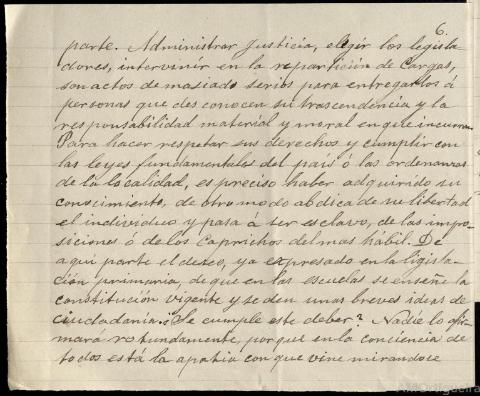 6.
parte. Administrar Justicia, elegir los legisla-
dores, intervenir en la repartición de Cargas,
son actos demasiado serios para entregarlos á
personas que desconocen su trascendencia y la
responsabilidad material y moral en que incurren.
Para hacer respetar sus derechos y cumplir con
las leyes fundamentales del país ó las ordenanzas
de la localidad, es preciso haber adquirido su
conocimiento, de otro modo abdica de su libertad
el individuo y pasa á ser esclavo, de las impo-
siciones ó de los caprichos del mas hábil. De
aqui parte el deseo, ya expresado en la ligisla-
ción primaria, de que en las escuelas se enseñe la
constitución vigente y se den unas breves ideas de
ciudadanía. ¿Se cumple este deber? Nadie lo afir-
mará rotundamente, porque en la conciencia de
todos está la apatía con que vine mirandose